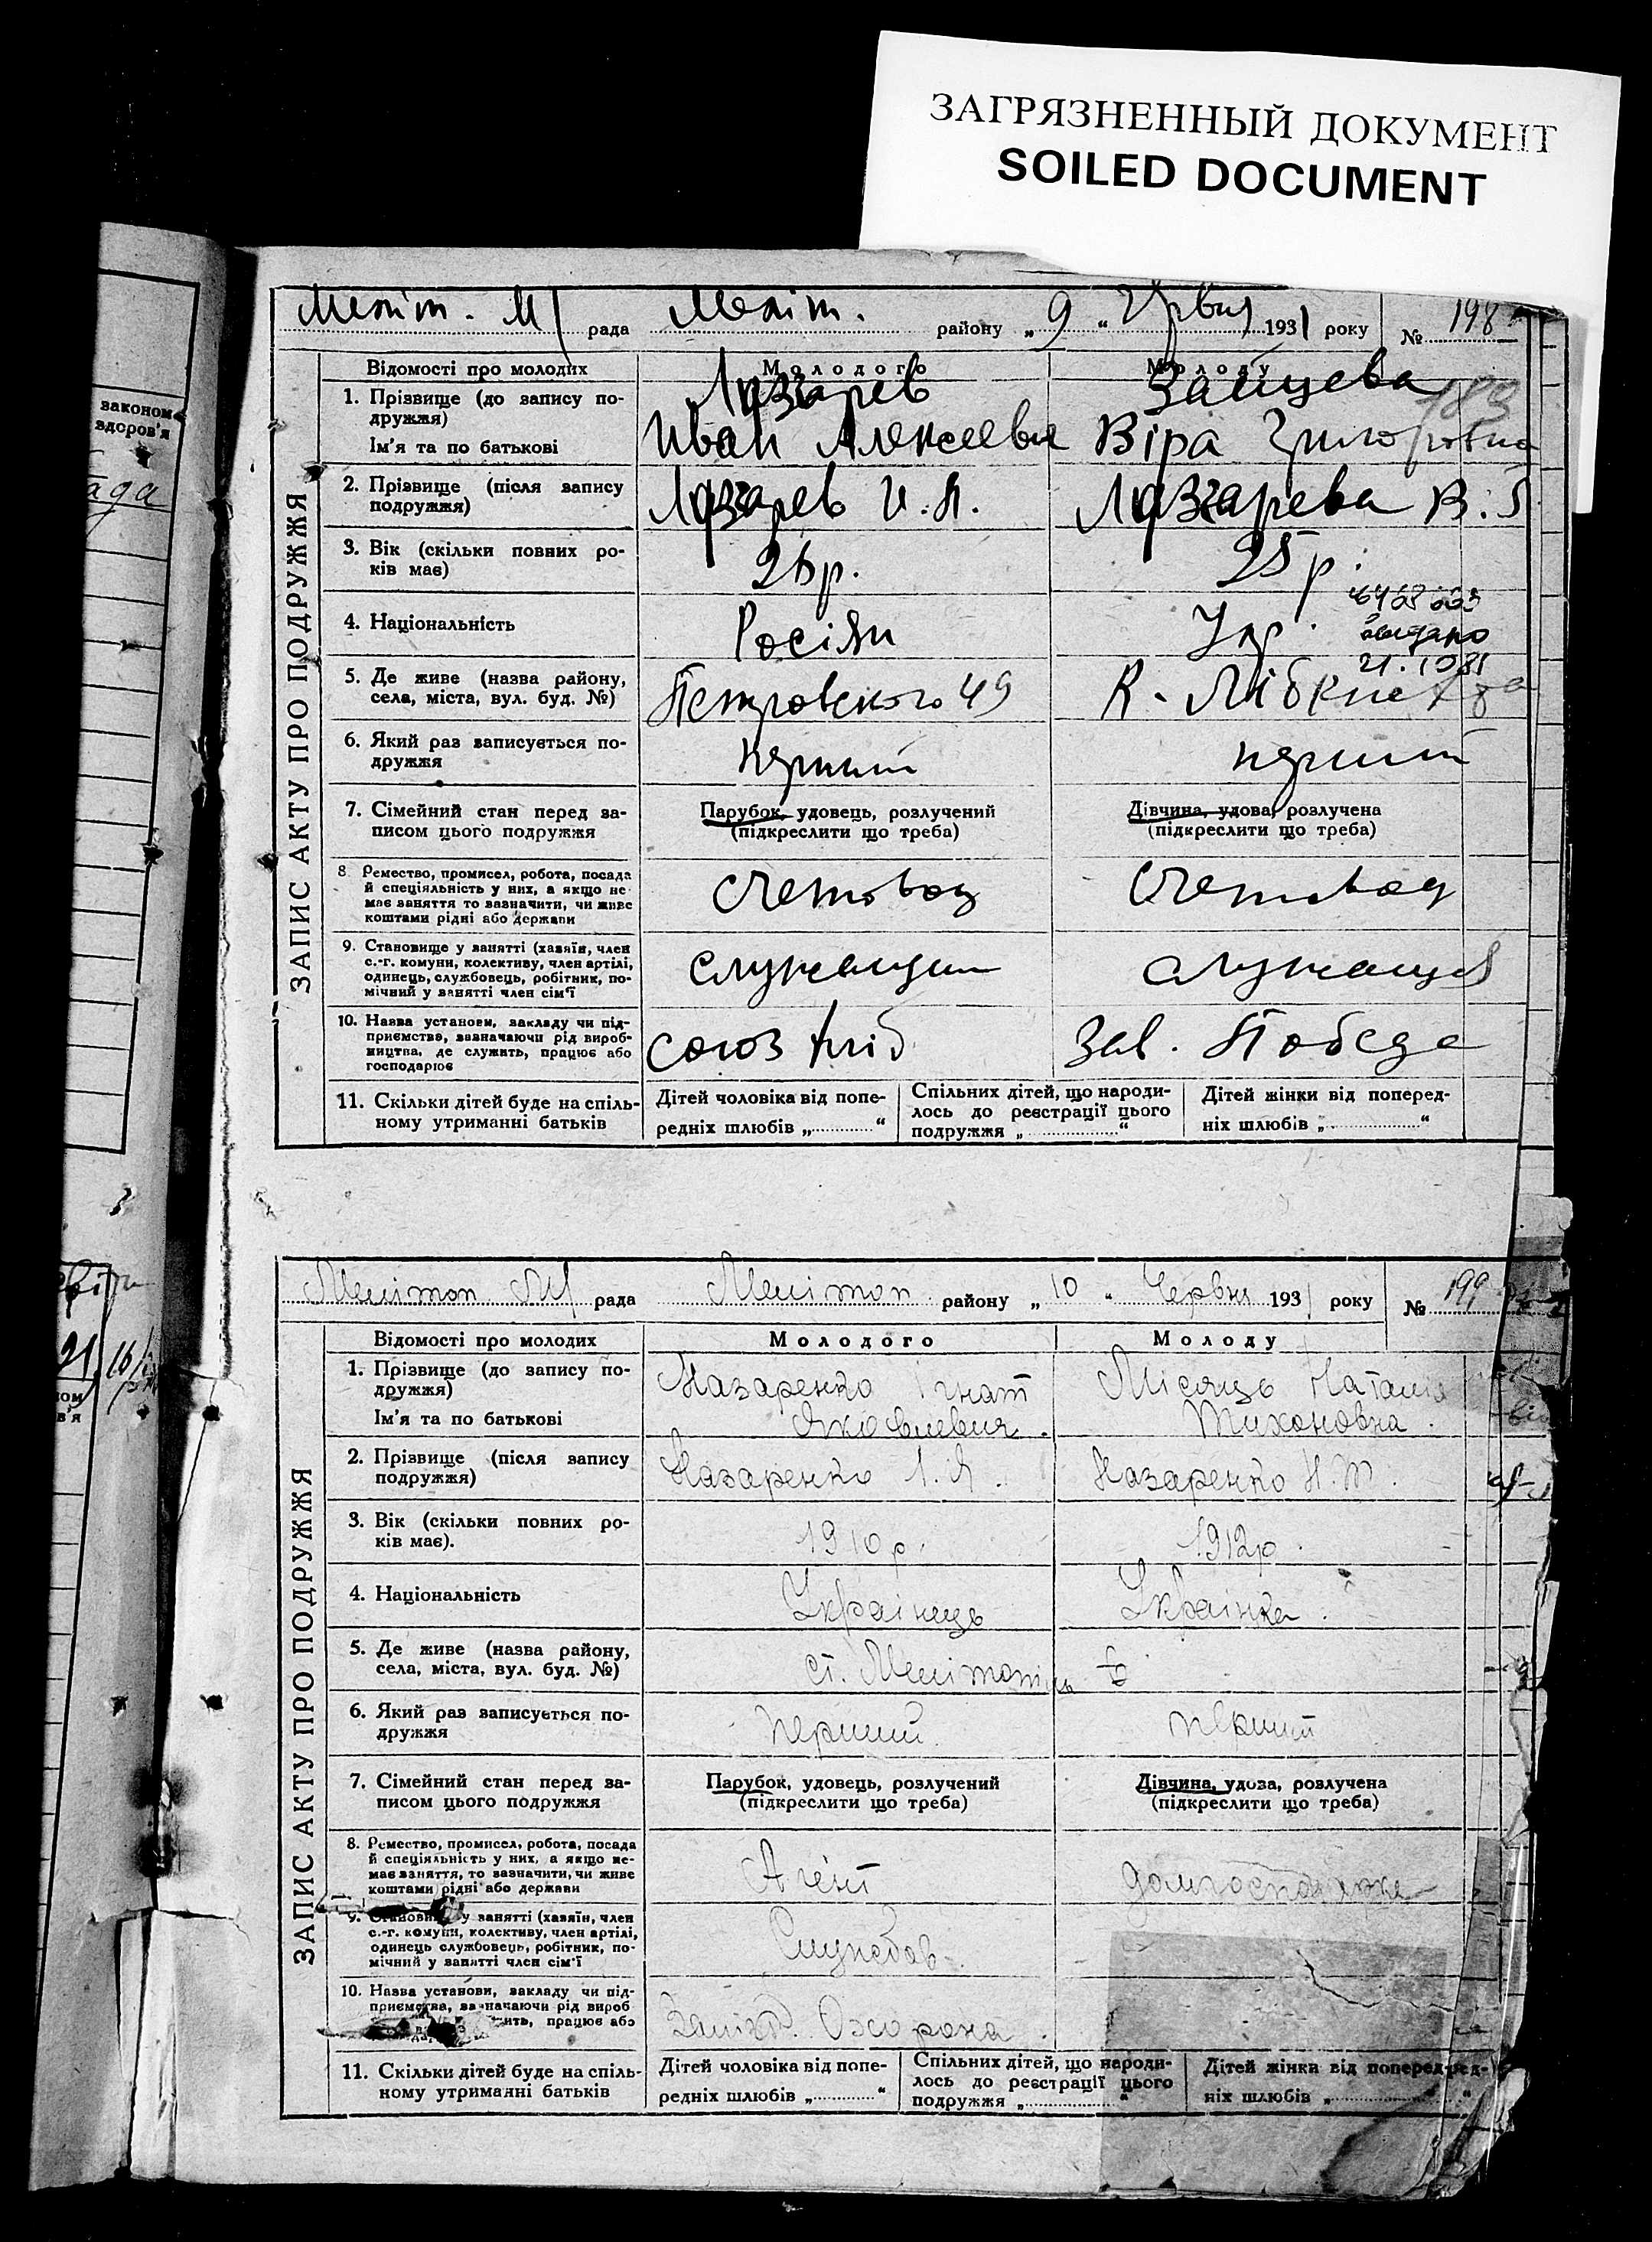 ЗАГРЯЗНЕННЫЙ ДОКУМЕНТ
SOILED DOCUMENT
законом
здоров'я
ада
ЗАПИС АКТУ ПРО ПОДРУЖЖЯ
Меліт. М/ рада Меліт. району „ 9 “ Червня 1931 року № 198
Відомості про молодих Молодого Молоду
1. Прізвище (до запису по-
дружжя) Лазарев Зайцева 183
Ім'я та по батькові Иван Алексеевич Віра Григоровна
2. Прізвище (після запису
подружжя) Лазарев И. А. Лазарева В. Г.
3. Вік (скільки повних ро-
ків має) 26 р. 25 р.
4. Національність Росіян Укр.
21. 1081
5. Де живе (назва району,
села, міста, вул. буд. №) Петровского 49 К. Лібкнехт 8а
6. Який раз записується по-
дружжя перший перший
7. Сімейний стан перед за-
писом цього подружжя Парубок, удовець, розлучений Дівчина, удова, розлучена
(підкреслити що треба) (підкреслити що треба)
8 Ремество, промисел, робота, посада
й спеціяльність у них, а якщо не
має заняття то зазначити, чи живе
коштами рідні або держави счетовод счетовод
9. Становище у занятті (хазяїн, член
с.-г. комуни, колективу, член артілі,
одинець, службовець, робітник, по-
мічний у занятті член сім'ї служащий служащая
10. Назва установи, закладу чи під-
приємства, зазначаючи рід вироб-
ництва, де служить, працює або
господарює союз хліб зав. Победа
11. Скільки дітей буде на спіль-
ному утриманні батьків
Дітей чоловіка від попе-
редніх шлюбів „ “
Спільних дітей, що народи-
лось до реєстрації цього
подружжя „ “
Дітей жінки від поперед-
ніх шлюбів „ “
21 16
ЗАПИС АКТУ ПРО ПОДРУЖЖЯ
Мелітоп М/ рада Мелітоп району „ 10 “ Червня 1931 року № 199
Відомості про молодих Молодого Молоду
1. Прізвище (до запису по-
дружжя) Назаренко Ігнат Місяць Наталія
Ім'я та по батькові Яковлевич. Тихоновна.
2. Прізвище (після запису
подружжя) Назаренко І. Я. Назаренко Н. Т.
3. Вік (скільки повних ро-
ків має). 1910 р. 1912 р.
4. Національність Українець Українка.
5. Де живе (назва району,
села, міста, вул. буд. №) ст. Мелітопіль
6. Який раз записується по-
дружжя перший перший
7. Сімейний стан перед за-
писом цього подружжя Парубок, удовець, розлучений Дівчина, удова, розлучена
(підкреслити що треба) (підкреслити що треба)
8. Ремество, промисел, робота, посада
й спеціяльність у них, а якщо не-
має заняття, то зазначити, чи живе
коштами рідні або держави Агент домгосподарка
9. Становищ у занятті (хазяїн, член
с.-г. комуни, колективу, член артілі,
одинець службовець, робітник, по-
мічний у занятті член сім'ї Службов.
10. Назва установи, закладу чи під-
приємства, зазначаючи рід вироб
ить, працює або
Залізд. Охорона.
11. Скільки дітей буде на спіль-
ному утриманні батьків
Дітей чоловіка від попе-
редніх шлюбів „ “
Спільних дітей, що народи-
лось до реєстрації цього
подружжя „ “
Дітей жінки від поперед-
ніх шлюбів „ “